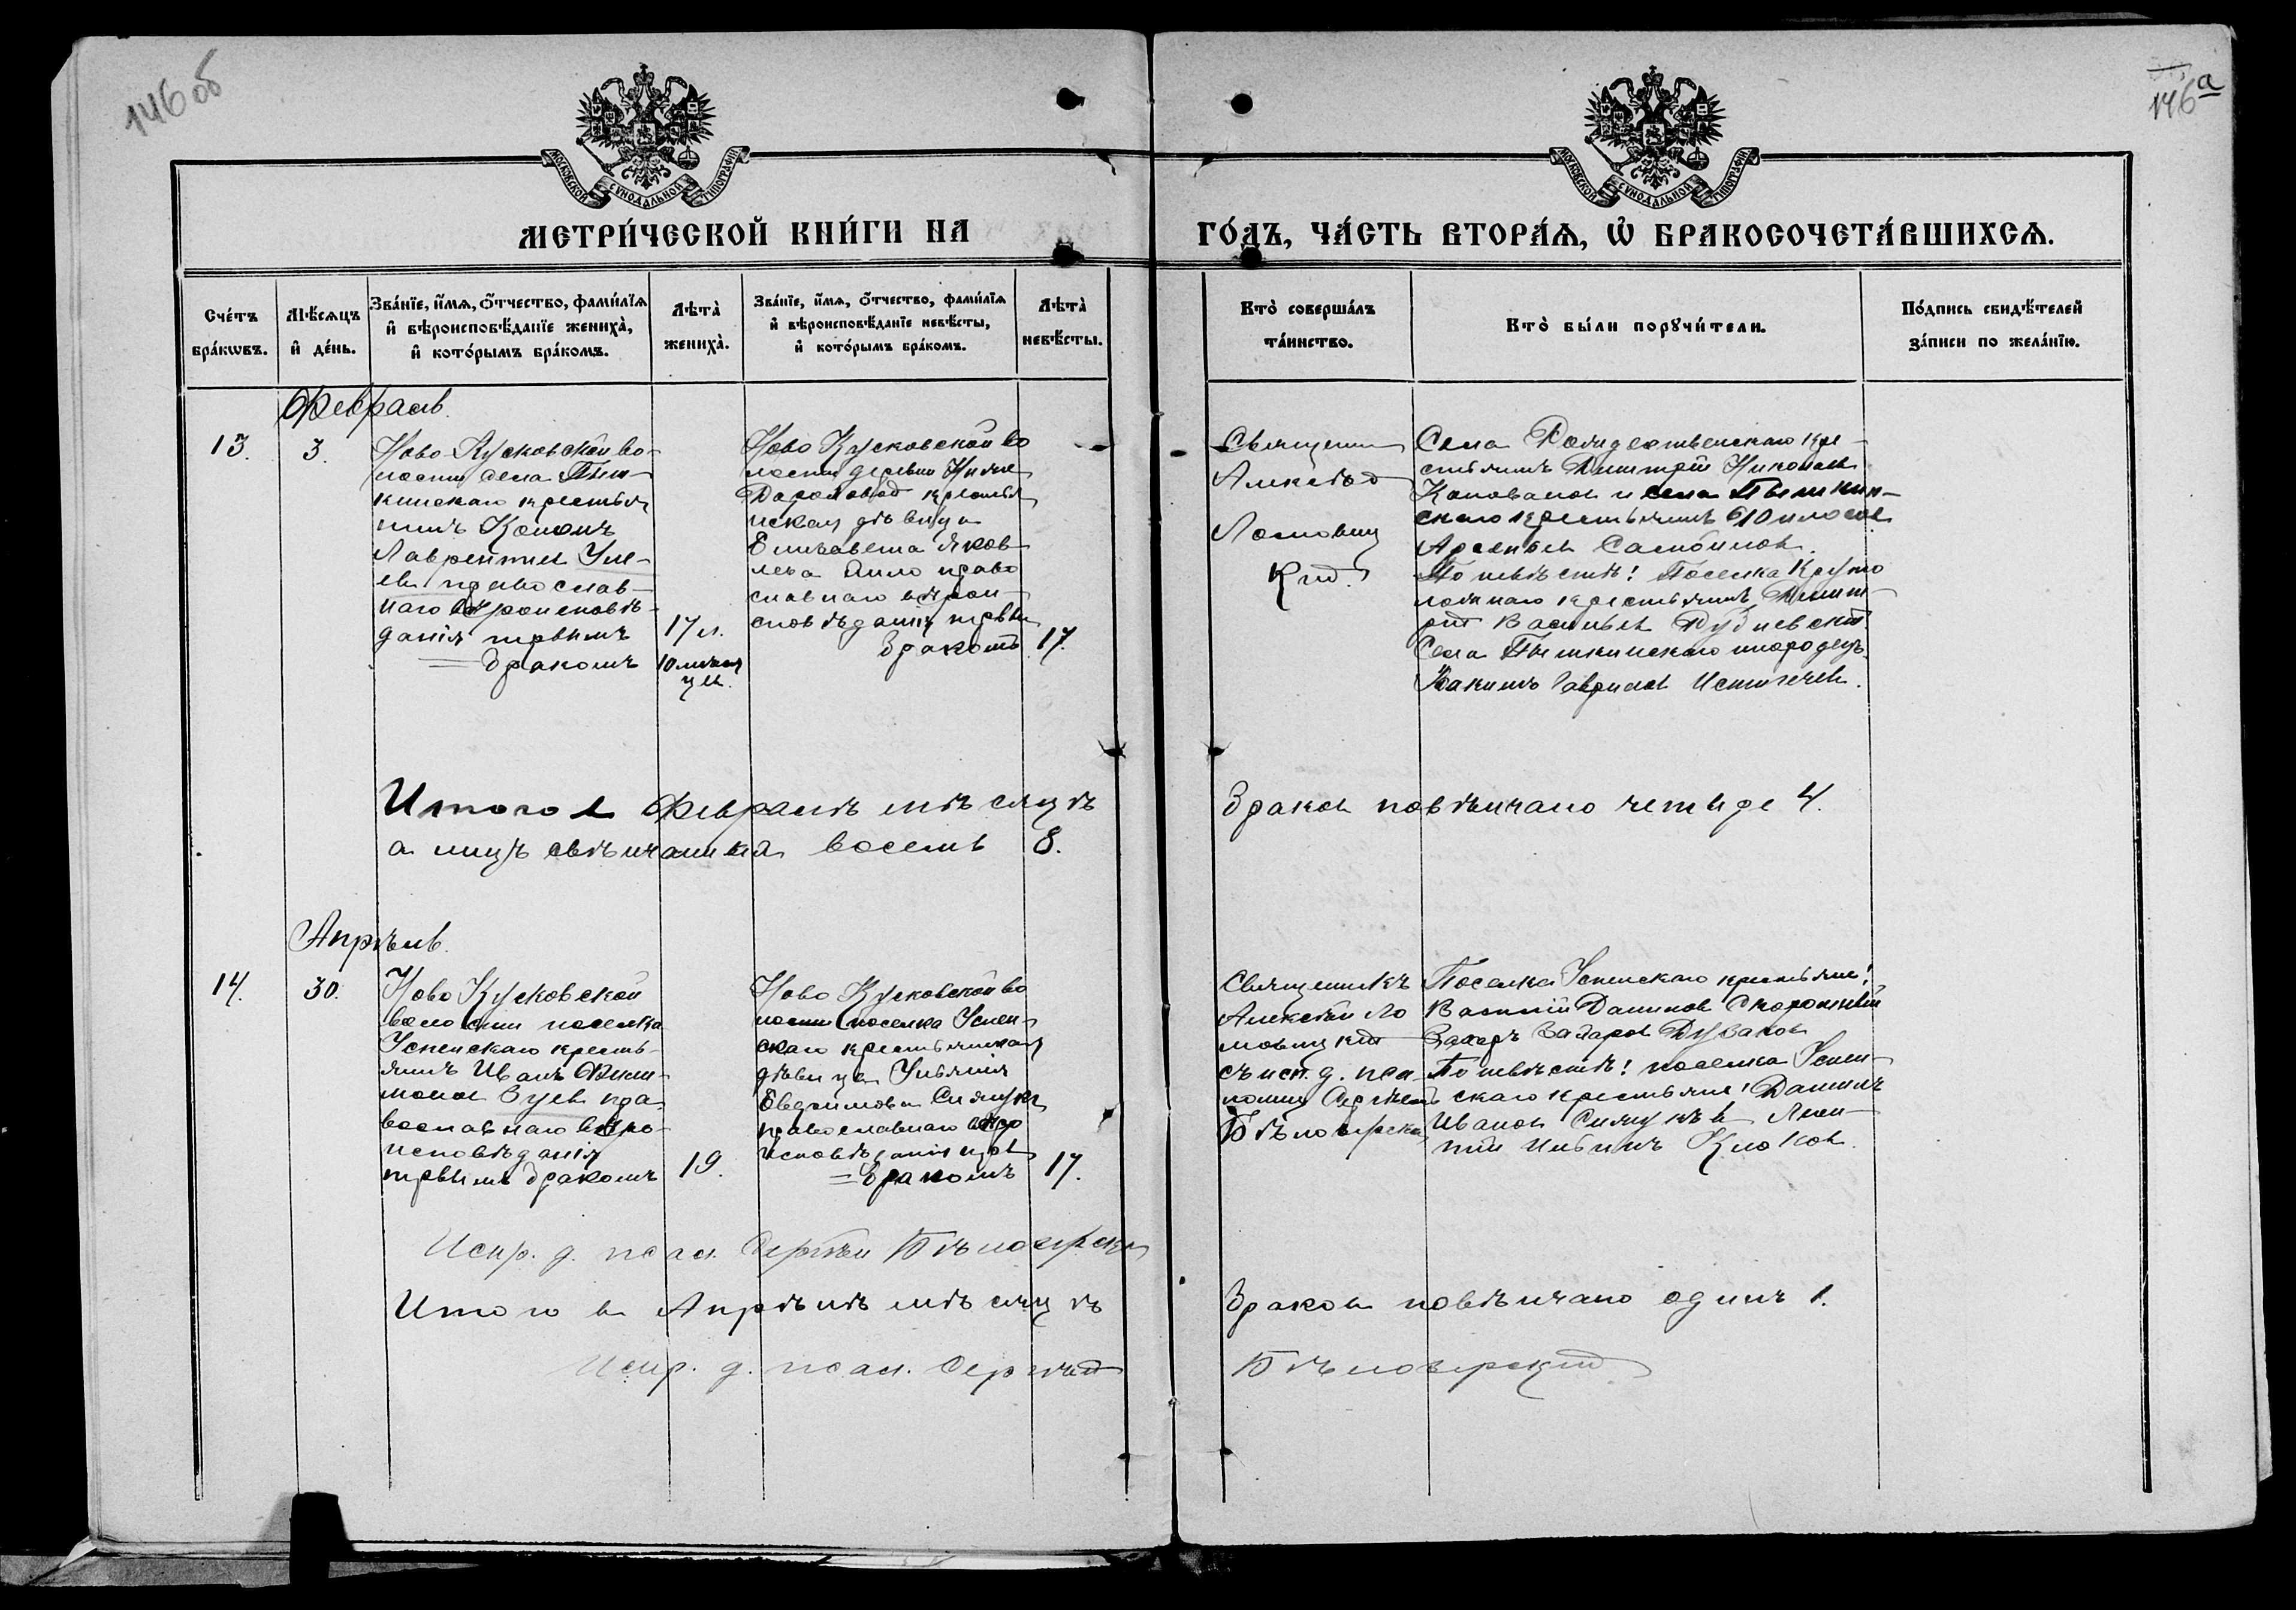 146 об
146а
МОСКОВСКОЙ СѴНОДАЛЬНОЙ ТИПОГРАФІИ
МОСКОВСКОЙ СѴНОДАЛЬНОЙ ТИПОГРАФІИ
МЕТРИ́ЧЕСКОЙ КНИ́ГИ НА
ГО́ДЪ, ЧА́СТЬ ВТОРА́Ѧ, Ѽ БРАКОСОЧЕТА́ВШИХСѦ.
Сче́тъ
бра́кѡвъ.
Мѣ́сѧцъ
и҆ де́нь.
Зва́нїе, и҆́мѧ, ѻ҆́тчество, фами́лїѧ
и҆ вѣроисповѣ́данїе жениха̀,
и҆ кото́рымъ бра́комъ.
Лѣта̀
жениха̀.
Зва́нїе, и҆́мѧ, ѻ҆́тчество, фами́лїѧ
и҆ вѣроисповѣ́данїе невѣ́сты,
и҆ кото́рымъ бра́комъ.
Лѣта̀
невѣ́сты.
Кто̀ соверша́лъ
та́инство.
Кто̀ бы́ли порꙋчи́тели.
По́дпись свидѣ́телей
за́писи по жела́нїю.
Февраль.
13.
3.
Ново Кусковской во-
лости села Пыш-
кинскаго крестья
нинъ
Лаврентіев
православ-
наго вѣроисповѣ-
данія первымъ
бракомъ
17 л.
10 мѣся
цев.
Ново Кусковской во
лости деревни
крестья
нская дѣвица
Елизавета Яков
лева право
славнаго вѣрои
сповѣданія первы
бракомъ
17.
Священни
Алексѣй
Ломовиц
кій.
Села Рождественскаго кре-
стьянинъ Димитрій Николаев
и села Пышкин-
скаго крестьянинъ
Арсеньев
По невѣстѣ: Поселка
крестьянинъ Димит-
рій Васильев
Села Пышкинскаго инородецъ
Іоакимъ Гаврилов
Итого в Февралѣ мѣсяцѣ
браков повѣнчано четыре 4.
а лицъ свѣнчанных восемь 8.
Апрѣль.
14.
30.
Ново Кусковской
волости поселка
Успенскаго кресть-
янинъ Иванъ Фили-
монов Зуев пра-
вославнаго вѣро-
исповѣданія
первымъ бракомъ
19.
Ново Кусковской во
лости поселка Успен-
скаго крестьянская
дѣвица Ульянія
Евдокимова
православнаго вѣро
исповѣданія перв
бракомъ
17.
Священникъ
Алексѣй Ло
мовицкій
съ исп. д. пса-
ломщ Сергѣем
Бѣлозерски
Поселка Успенскаго крестьяне:
Василій Данилов
Захаръ Захаров
По невѣстѣ: поселка Успен-
скаго крестьяне: Даниилъ
Иванов
Клюков.
Испр. д. псал. Сергѣй Бѣлозерскій
Итого в Апрѣлѣ мѣсяцѣ
браков повѣнчано одинъ 1.
Испр. д. псал. Сергѣй
Бѣлозерскій